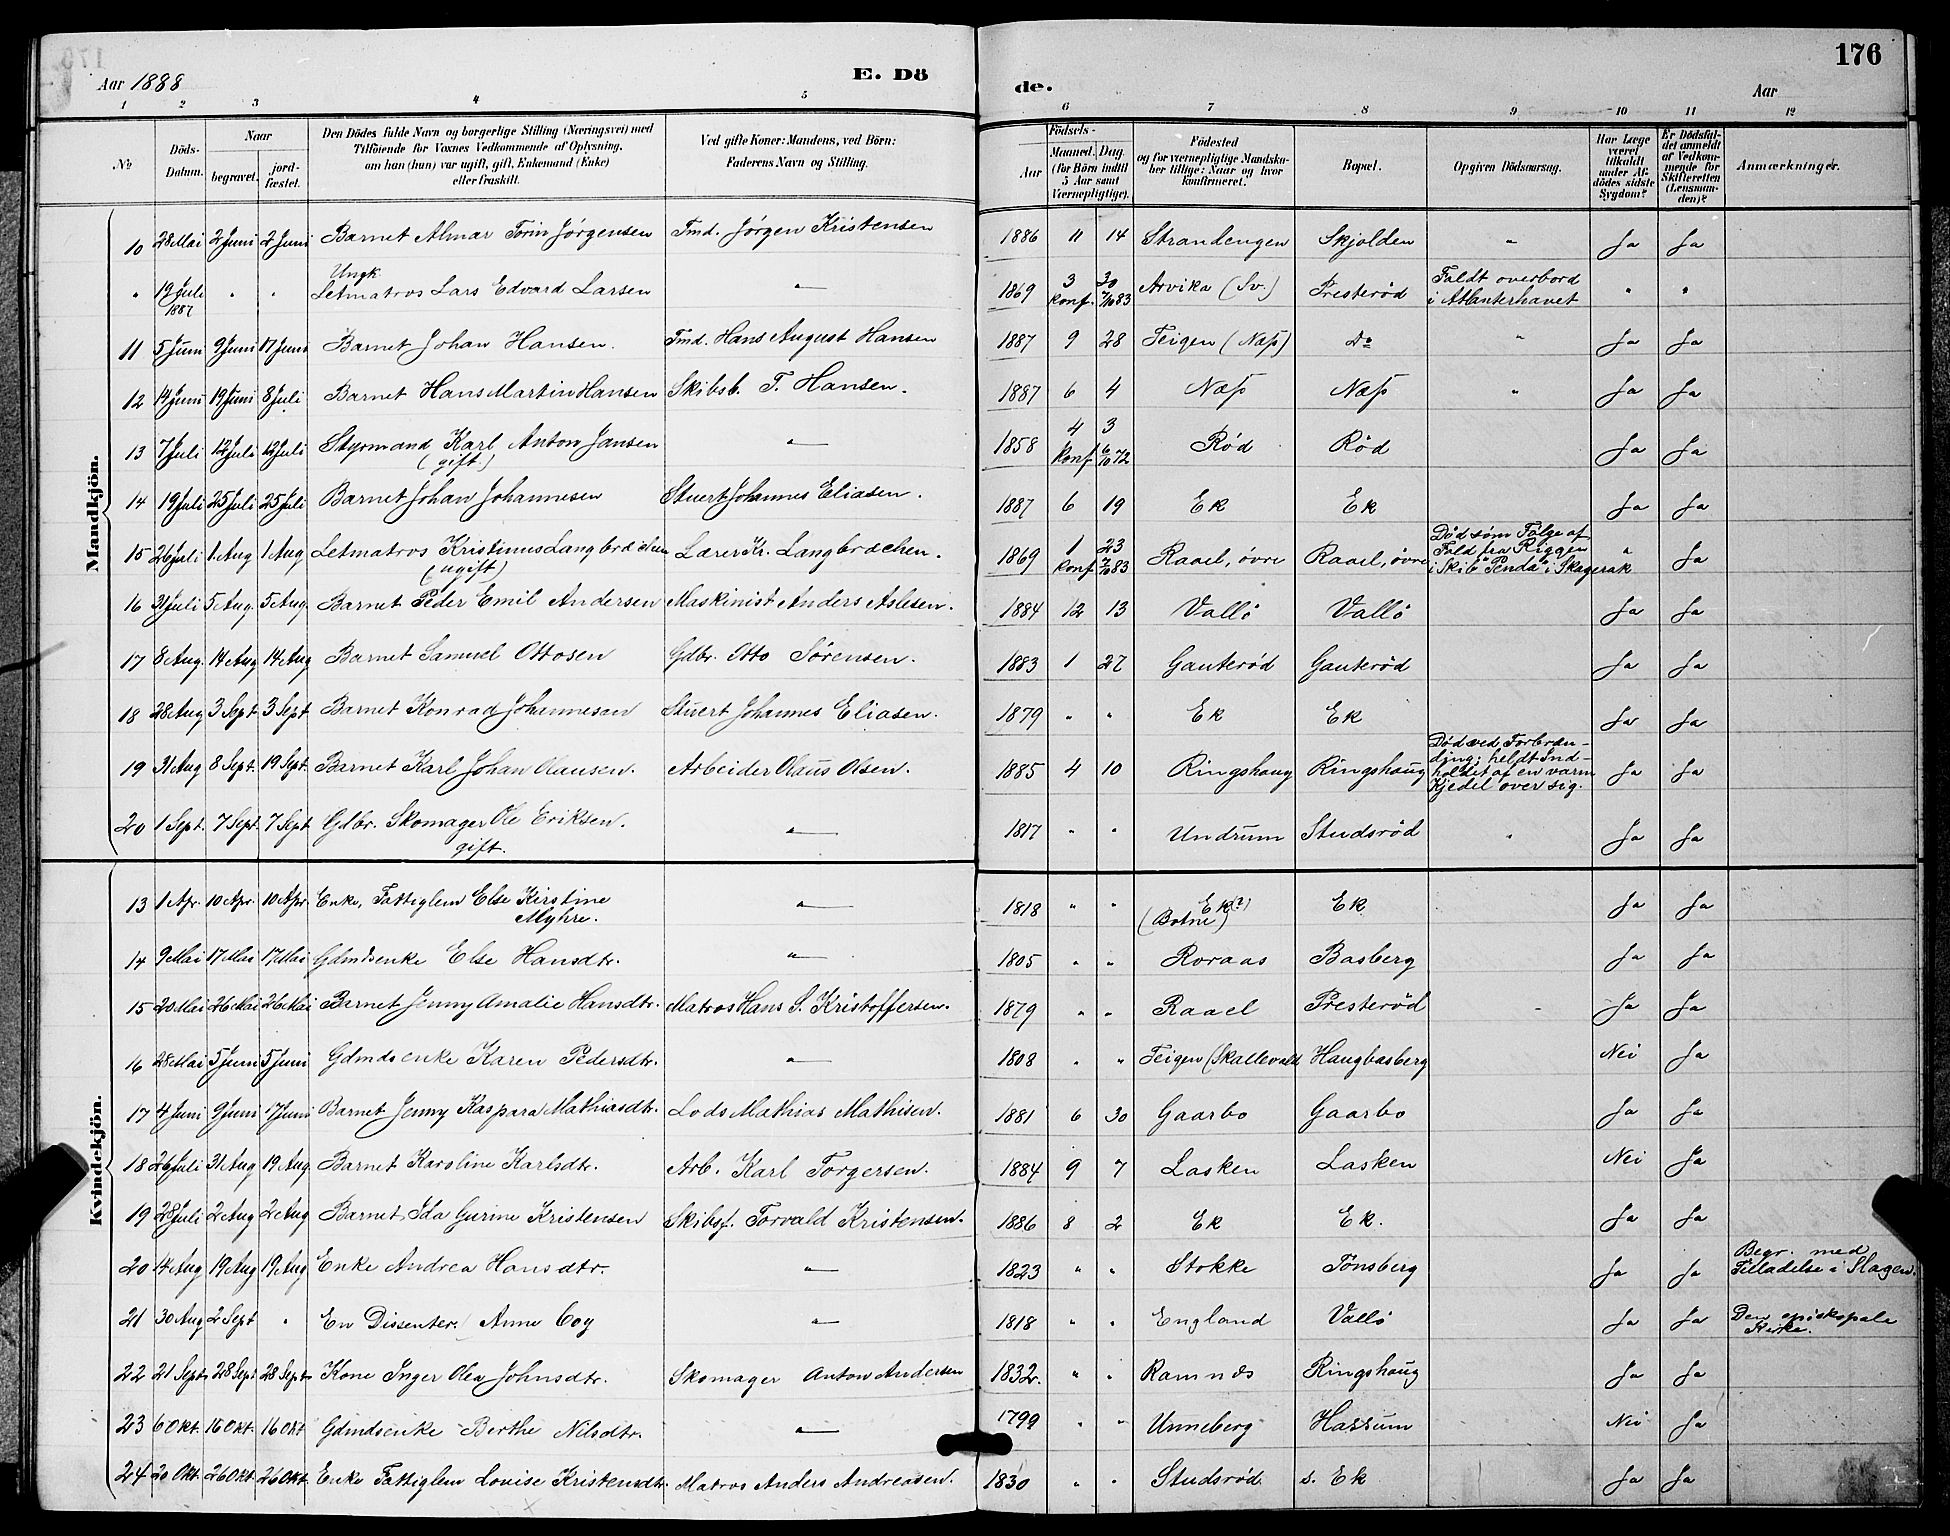 176
Aar 1888
E. Dö
de.
Aar
1 2 3 4 5 6 7 8 9 10 11 12
№ Döds-Datum. Naar begravet. jord-fæstet. Den Dödes fulde Navn og borgerlige Stilling (Næringsvei) med Tilföiende for Voxnes Vedkommende af Oplysning, om han (hun) var ugift, gift, Enkemand (Enke) eller fraskilt. Ved gifte Koner: Mandens, ved Börn: Faderens Navn og Stilling. Födsels- Aar Maaned. Dag. (for Börn indtil 5 Aar samt Værnepligtige). Födested og for værnepligtige Mandskaber tillige: Naar og hvor konfirmeret. Bopæl. Opgiven Dödsaarsag. Har Læge været tilkaldt under Afdödes sidste Sygdom? Er Dödsfaldet anmeldt af Vedkommende for Skifteretten (Lensmanden)? Anmærkninger.
Mandkjön.
10 28 Mai 2 Juni 2 Juni Barnet Almar Torin Jørgensen Tmd. Jørgen Kristensen 1886 11 14 Strandengen Skjolden " Ja Ja
" 19 Juli 1887 " " Ungk. Letmatros Lars Edvard Larsen " 1869 3 30 konf. 7/10 83 Arvika (Sv.) Presterød Faldt overbord i Atlanterhavet " "
11 5 Juni 9 Juni 17 Juni Barnet Johan Hansen. Tmd. Hans August Hansen 1887 9 28 Teigen (Næs) Do " Ja Ja
12 14 Juni 19 Juni 8 Juli Barnet Hans Martin Hansen Skibsb. T. Hansen. 1887 6 4 Næs Næs " Ja Ja
13 7 Juli 12 Juli 12 Juli Styrmand Karl Anton Jansen (gift.) " 1858 4 3 konf. 6/10 72 Rød Rød Ja Ja
14 19 Juli 25 Juli 25 Juli Barnet Johan Johannesen Stuert Johannes Eliasen. 1887 6 19 Ek Ek Ja Ja
15 26 Juli 1 Aug 1 Aug Letmatros Kristinus Langbrachen (ugift) Lærer Kr. Langbrachen. 1869 1 23 konf. 7/10 83 Raael, övre Raael, övre Død som Følge af Fald fra Riggen i Skib "Penda" i Skagerak " Ja
16 31 Juli 5 Aug. 5 Aug. Barnet Peder Emil Andersen Maskinist Anders Aslesen. 1884 12 13 Vallö Vallö Ja Ja
17 8 Aug. 14 Aug 14 Aug Barnet Samuel Ottosen Gdbr. Otto Sørensen. 1883 1 27 Gauterød Gauterød Ja Ja
18 28 Aug 3 Sept 3 Sept Barnet Konrad Johannesen Stuert Johannes Eliasen. 1879 " " Ek Ek Ja Ja
19 31 Aug 8 Sept. 19 Sept. Barnet Karl Johan Olausen. Arbeider Olaus Olsen. 1885 4 10 Ringshaug Ringshaug Død ved Forbrænding; heldt Indholdet af en varm Kjedel over sig. Ja Ja
20 1 Sept. 7 Sept. 7 Sept Gdbr. Skomager Ole Eriksen. gift. " 1817 " " Undrum Studsrød " Ja Ja
Kvindekjön.
13 1 Apr. 10 Apr. 10 Apr. Enke, Fattiglem Else Kirstine Myhre. " 1818 " " Ek (?) (Botne) Ek Ja Ja
14 9 Mai 17 Mai 17 Mai Gdmdsenke Else Hansdtr. " 1805 " " Roraas Basberg Ja Ja
15 20 Mai 26 Mai 26 Mai Barnet Jenny Amalie Hansdtr. Matros Hans S. Kristoffersen. 1879 " " Raael Presterød Ja Ja
16 28 Mai 5 Juni 5 Juni Gdmdsenke Karen Pedersdtr. " 1808 " " Teigen (Skallevold Haugbasberg Nei Ja
17 4 Juni 9 Juni 17 Juni Barnet Jenny Kaspara Mathiasdtr. Lods Mathias Mathisen. 1881 6 30 Gaarbo Gaarbo Ja Ja
18 26 Juli 31 Aug 19 Aug Barnet Karoline Karlsdtr. Arb. Karl Torgersen. 1884 9 7 Lasken Lasken Nei Ja
19 28 Juli 2 Aug 2 Aug Barnet Ida Gurine Kristensen Skibsf. Torvald Kristensen. 1886 8 2 Ek Ek. Ja Ja
20 14 Aug 19 Aug 19 Aug Enke Andrea Hansdtr. " 1823 " " Stokke Tönsberg Ja Ja Begr. med Tilladelse i Slagen.
21 30 Aug 2 Sept " En Dissenter. Anne Coy " 1818 " " England Vallö Ja Ja Den episkopale Kirke.
22 21 Sept. 28 Sept 28 Sept. Kone Inger Olea Johnsdtr. Skomager Anton Andersen 1832. " " Ramnes Ringshaug Ja Ja
23 6 Okt. 16 Okt. 16 Okt Gdmdsenke Berthe Nilsdtr. " 1799 " " Unneberg Hassum Nei Ja
24 20 Okt. 26 Okt. 26 Okt. Enke Fattiglem Lovise Kristensdtr. Matros Anders Andreasen. 1830 " Studsrød s. Ek Ja Ja